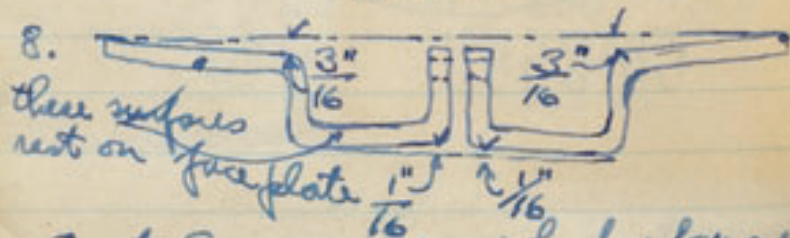 8.
3" 3"
16 16
these surfaces
rest on face plate 1" 1"
16 16